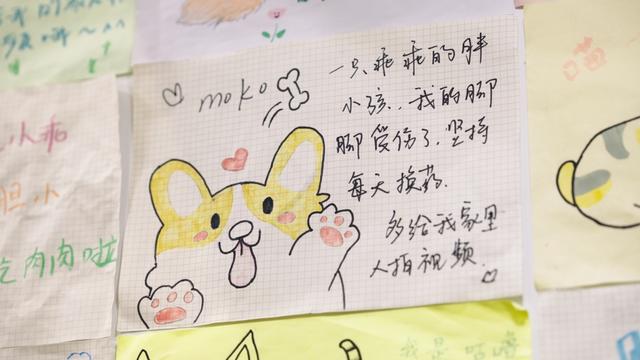 moko
一只乖乖的胖
小孩..我的脚
脚受伤了.坚持
每天换药.
多给我家里
人拍视频.
小乖
胆.小
吃肉肉啦
喵
我是